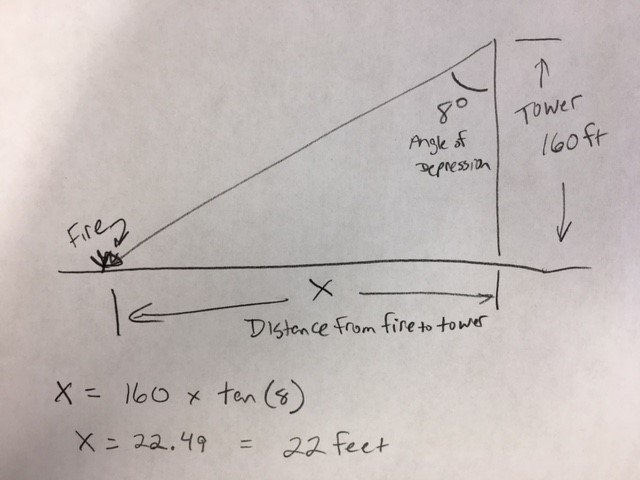 8°
Angle of
Depression
Tower
160ft
Fire
X
Distance from fire to tower
X = 160 x tan (8)
X = 22.49 = 22 feet